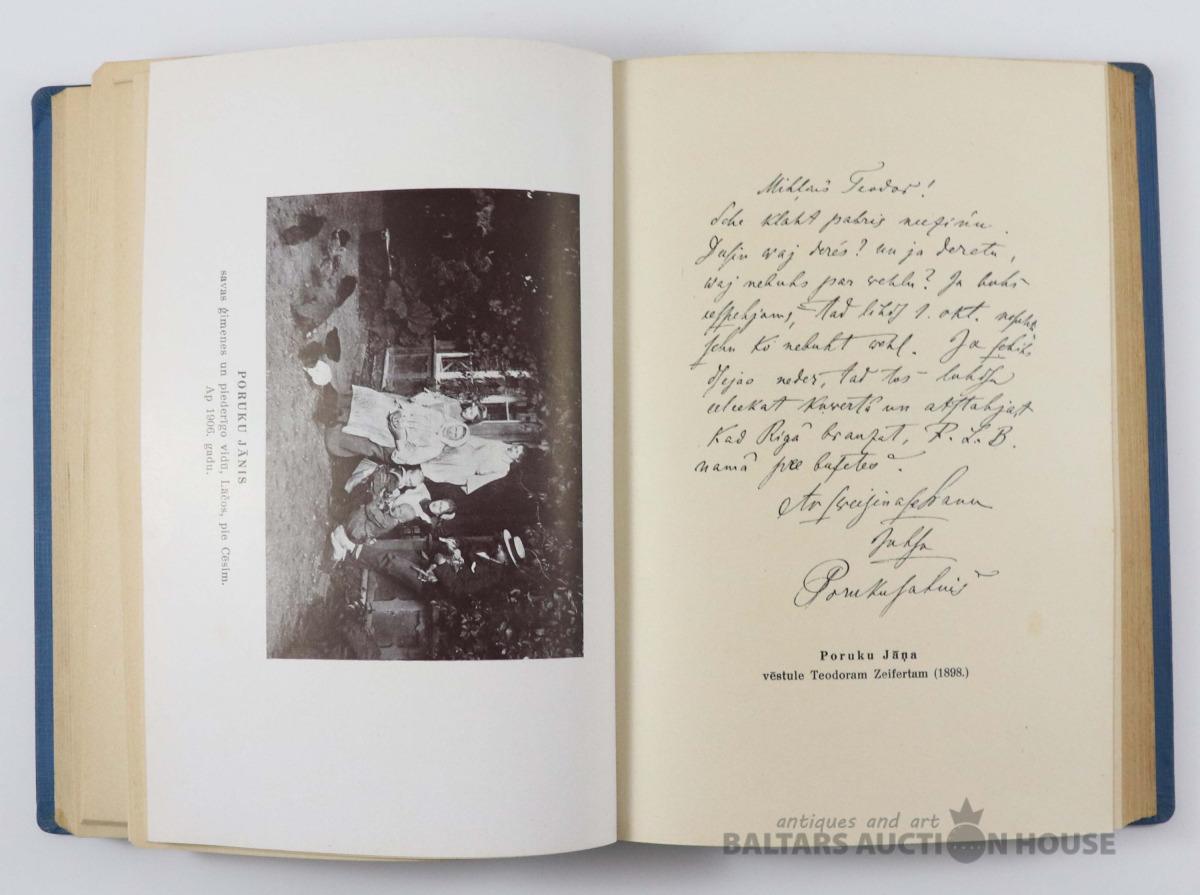 PORUKU JĀNIS
savas ģimenes un piederīgo vidū, Lāčos, pie Cēsīm.
Ap 1906. gadu.
Mihļais Teodor!
Sche klaht pahris
waj derēs? un ja deretu,
waj nebuhs par wehlu? Ja buhs
eespehjams, tad lihdſ 1. okt.
ko nebuht wehl. Ja ſchihs
dſejas neder, tad tos luhdſu
eeleekat kuwertâ un atſtahjat
kad Rigâ brauzat, R. L. B.
namâ pee bufetes.
Ar ſweizinaſchanu
Juhſu
Porukujahnis
Poruku Jāņa
vēstule Teodoram Zeifertam (1898.)
antiques and art
BALTARS AUCTION HOUSE